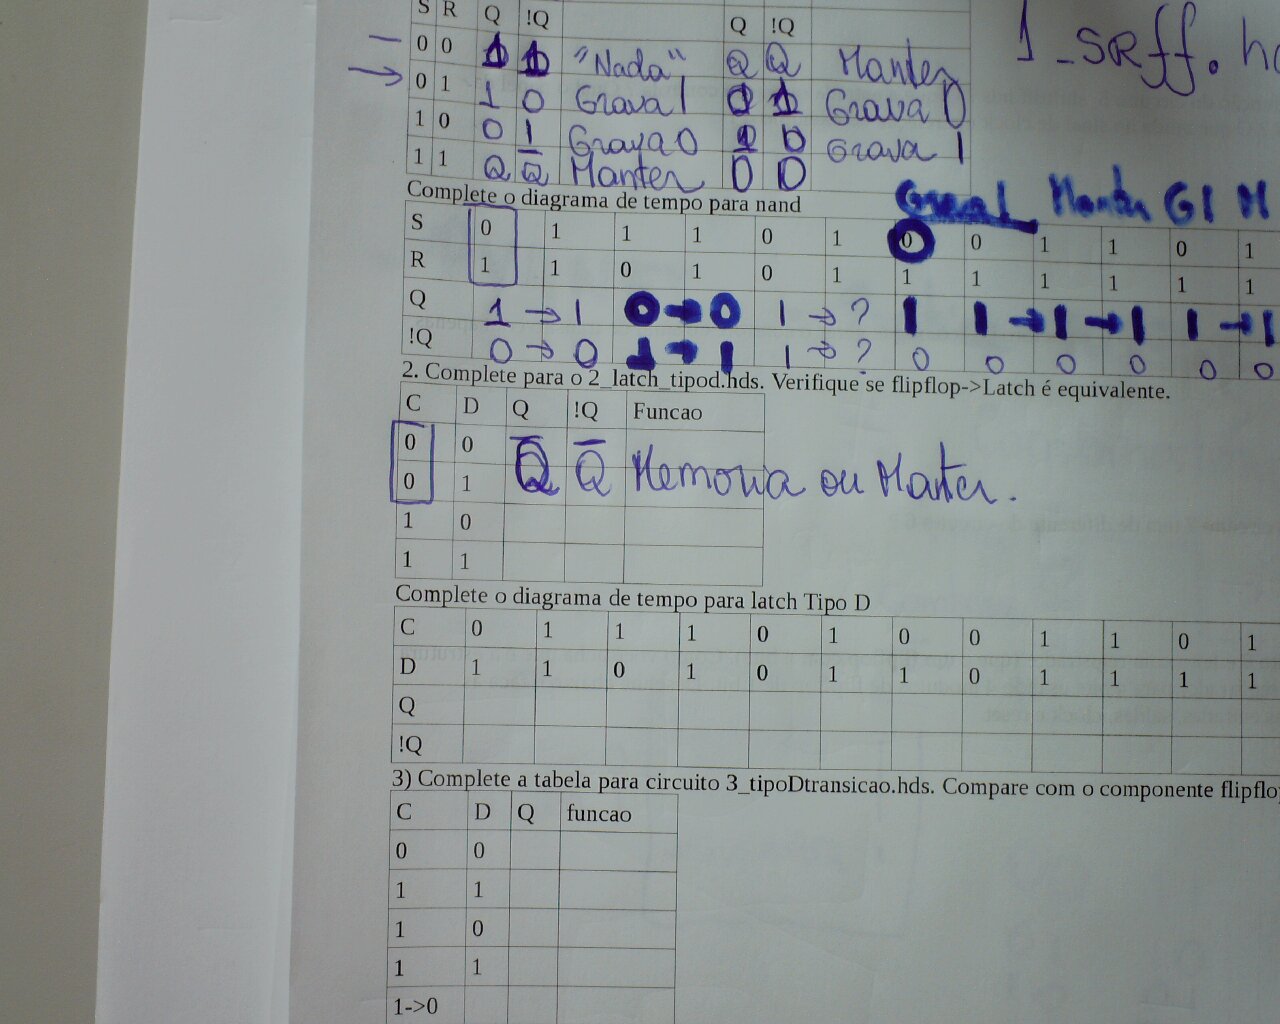 S R Q !Q Q !Q
0 0 1 1 "Nada" Q Q̅ Manter
0 1 1 0 Grava 1 0 1 Grava 0
1 0 0 1 Grava 0 1 0 Grava 1
1 1 Q Q̅ Manter 0 0
1_srff.
Complete o diagrama de tempo para nand
Grava 1 Manter G1 M
S 0 1 1 1 0 1 0 0 1 1 0 1
R 1 1 0 1 0 1 1 1 1 1 1 1
Q 1 → 1 0 → 0 1 → ? 1 1 → 1 → 1 1 → 1
!Q 0 → 0 1 → 1 1 → ? 0 0 0 0 0 0
2. Complete para o 2_latch_tipod.hds. Verifique se flipflop->Latch é equivalente.
C D Q !Q Funcao
0 0
0 1 Q Q̅ Memoria ou Manter.
1 0
1 1
Complete o diagrama de tempo para latch Tipo D
C 0 1 1 1 0 1 0 0 1 1 0 1
D 1 1 0 1 0 1 1 0 1 1 1 1
Q
!Q
3) Complete a tabela para circuito 3_tipoDtransicao.hds. Compare com o componente flipflo
C D Q funcao
0 0
1 1
1 0
1 1
1->0